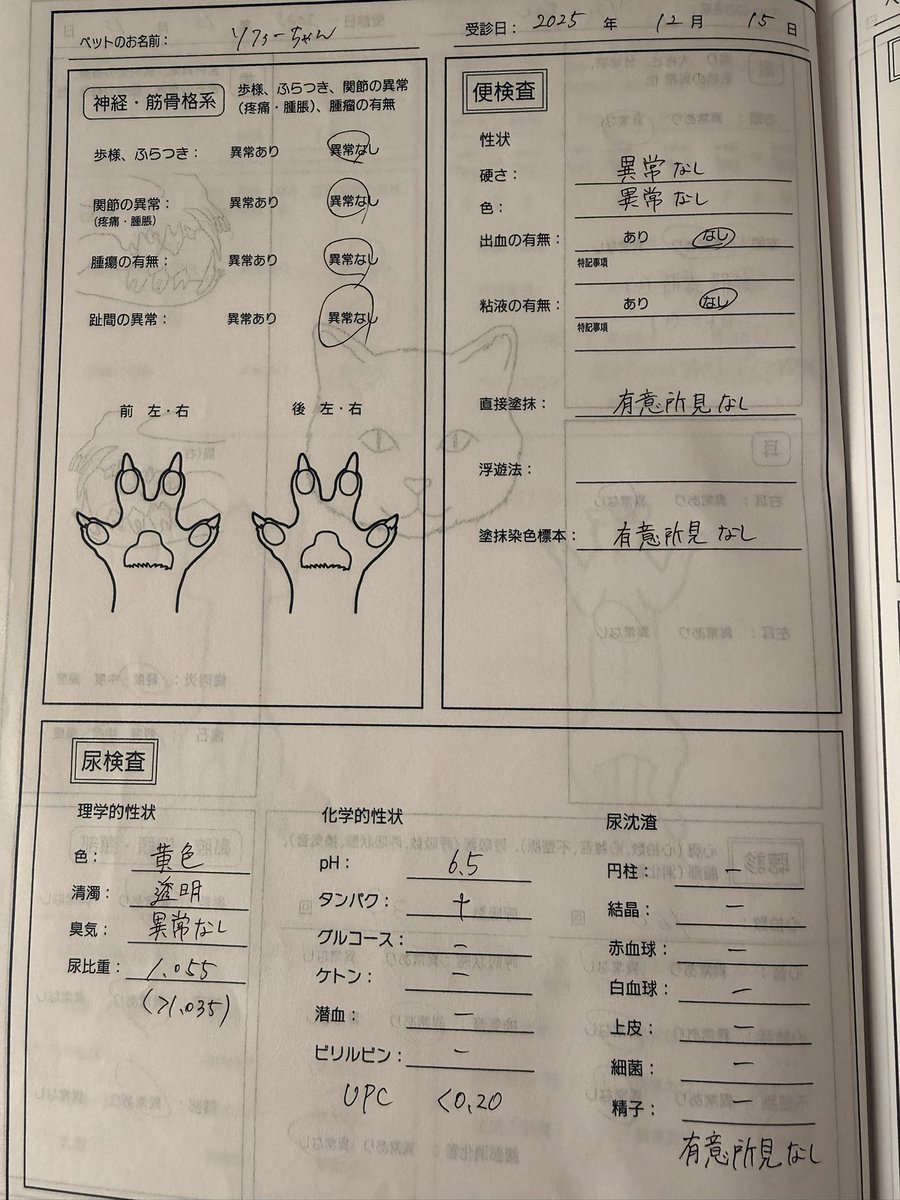 ペットのお名前： リファーちゃん
受診日： 2025 年 12 月 15 日
神経・筋骨格系
歩様、ふらつき、関節の異常
（疼痛・腫脹）、腫瘤の有無
歩様、ふらつき： 異常あり 異常なし
関節の異常： 異常あり 異常なし
（疼痛・腫脹）
腫瘍の有無： 異常あり 異常なし
趾間の異常： 異常あり 異常なし
前 左・右 後 左・右
便検査
性状
硬さ： 異常なし
色： 異常なし
出血の有無： あり なし
特記事項
粘液の有無： あり なし
特記事項
直接塗抹： 有意所見なし
浮遊法：
塗抹染色標本： 有意所見なし
尿検査
理学的性状
色： 黄色
清濁： 透明
臭気： 異常なし
尿比重： 1.055
(>1.035)
化学的性状
pH： 6.5
タンパク： +
グルコース： −
ケトン： −
潜血： −
ビリルビン： −
UPC <0.20
尿沈渣
円柱： −
結晶： −
赤血球： −
白血球： −
上皮： −
細菌： −
精子： −
有意所見なし